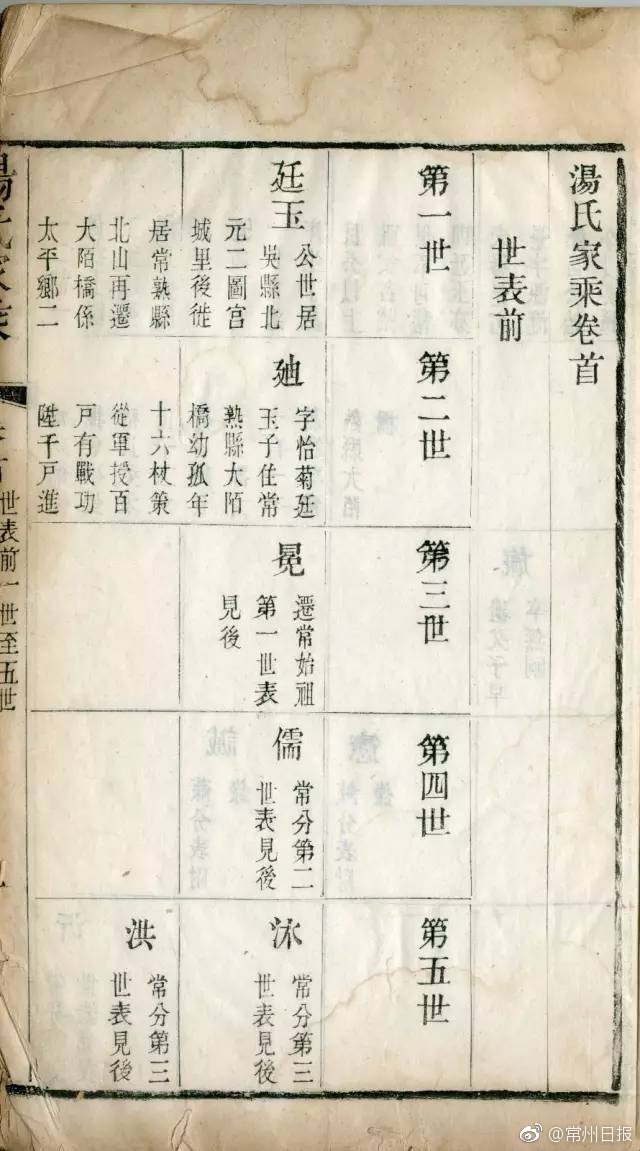 湯氏家乘卷首
世表前
第一世
廷玉
公世居
吳縣北
元二圖宫
城里後徙
居常熟縣
北山再遷
大陌橋係
太平鄉二
第二世
廸
字怡菊廷
玉子住常
熟縣大陌
橋幼孤年
十六杖策
從軍授百
戸有戰功
陞千戸進
第三世
冕
遷常始祖
第一世表
見後
第四世
儒
常分第二
世表見後
第五世
常分第三
世表見後
洪
常分第三
世表見後
湯氏家乘
世表前一世至五世
@常州日报